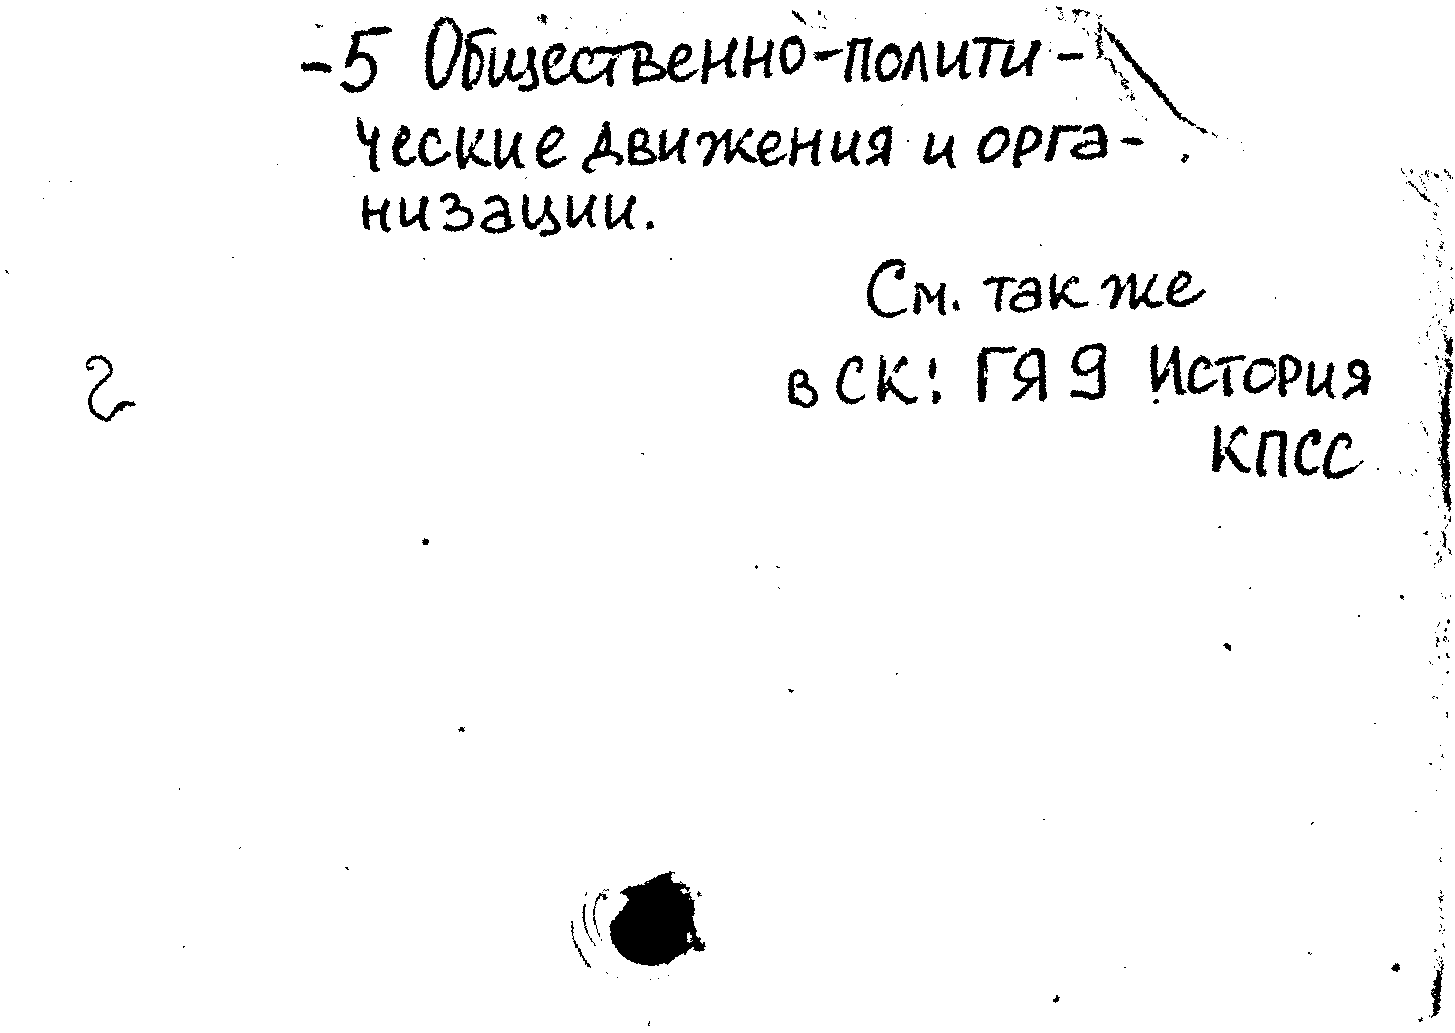 -5 Общественно-полити-
ческие движения и орга-
низации.
См. также
в СК: ГЯ9 История
КПСС